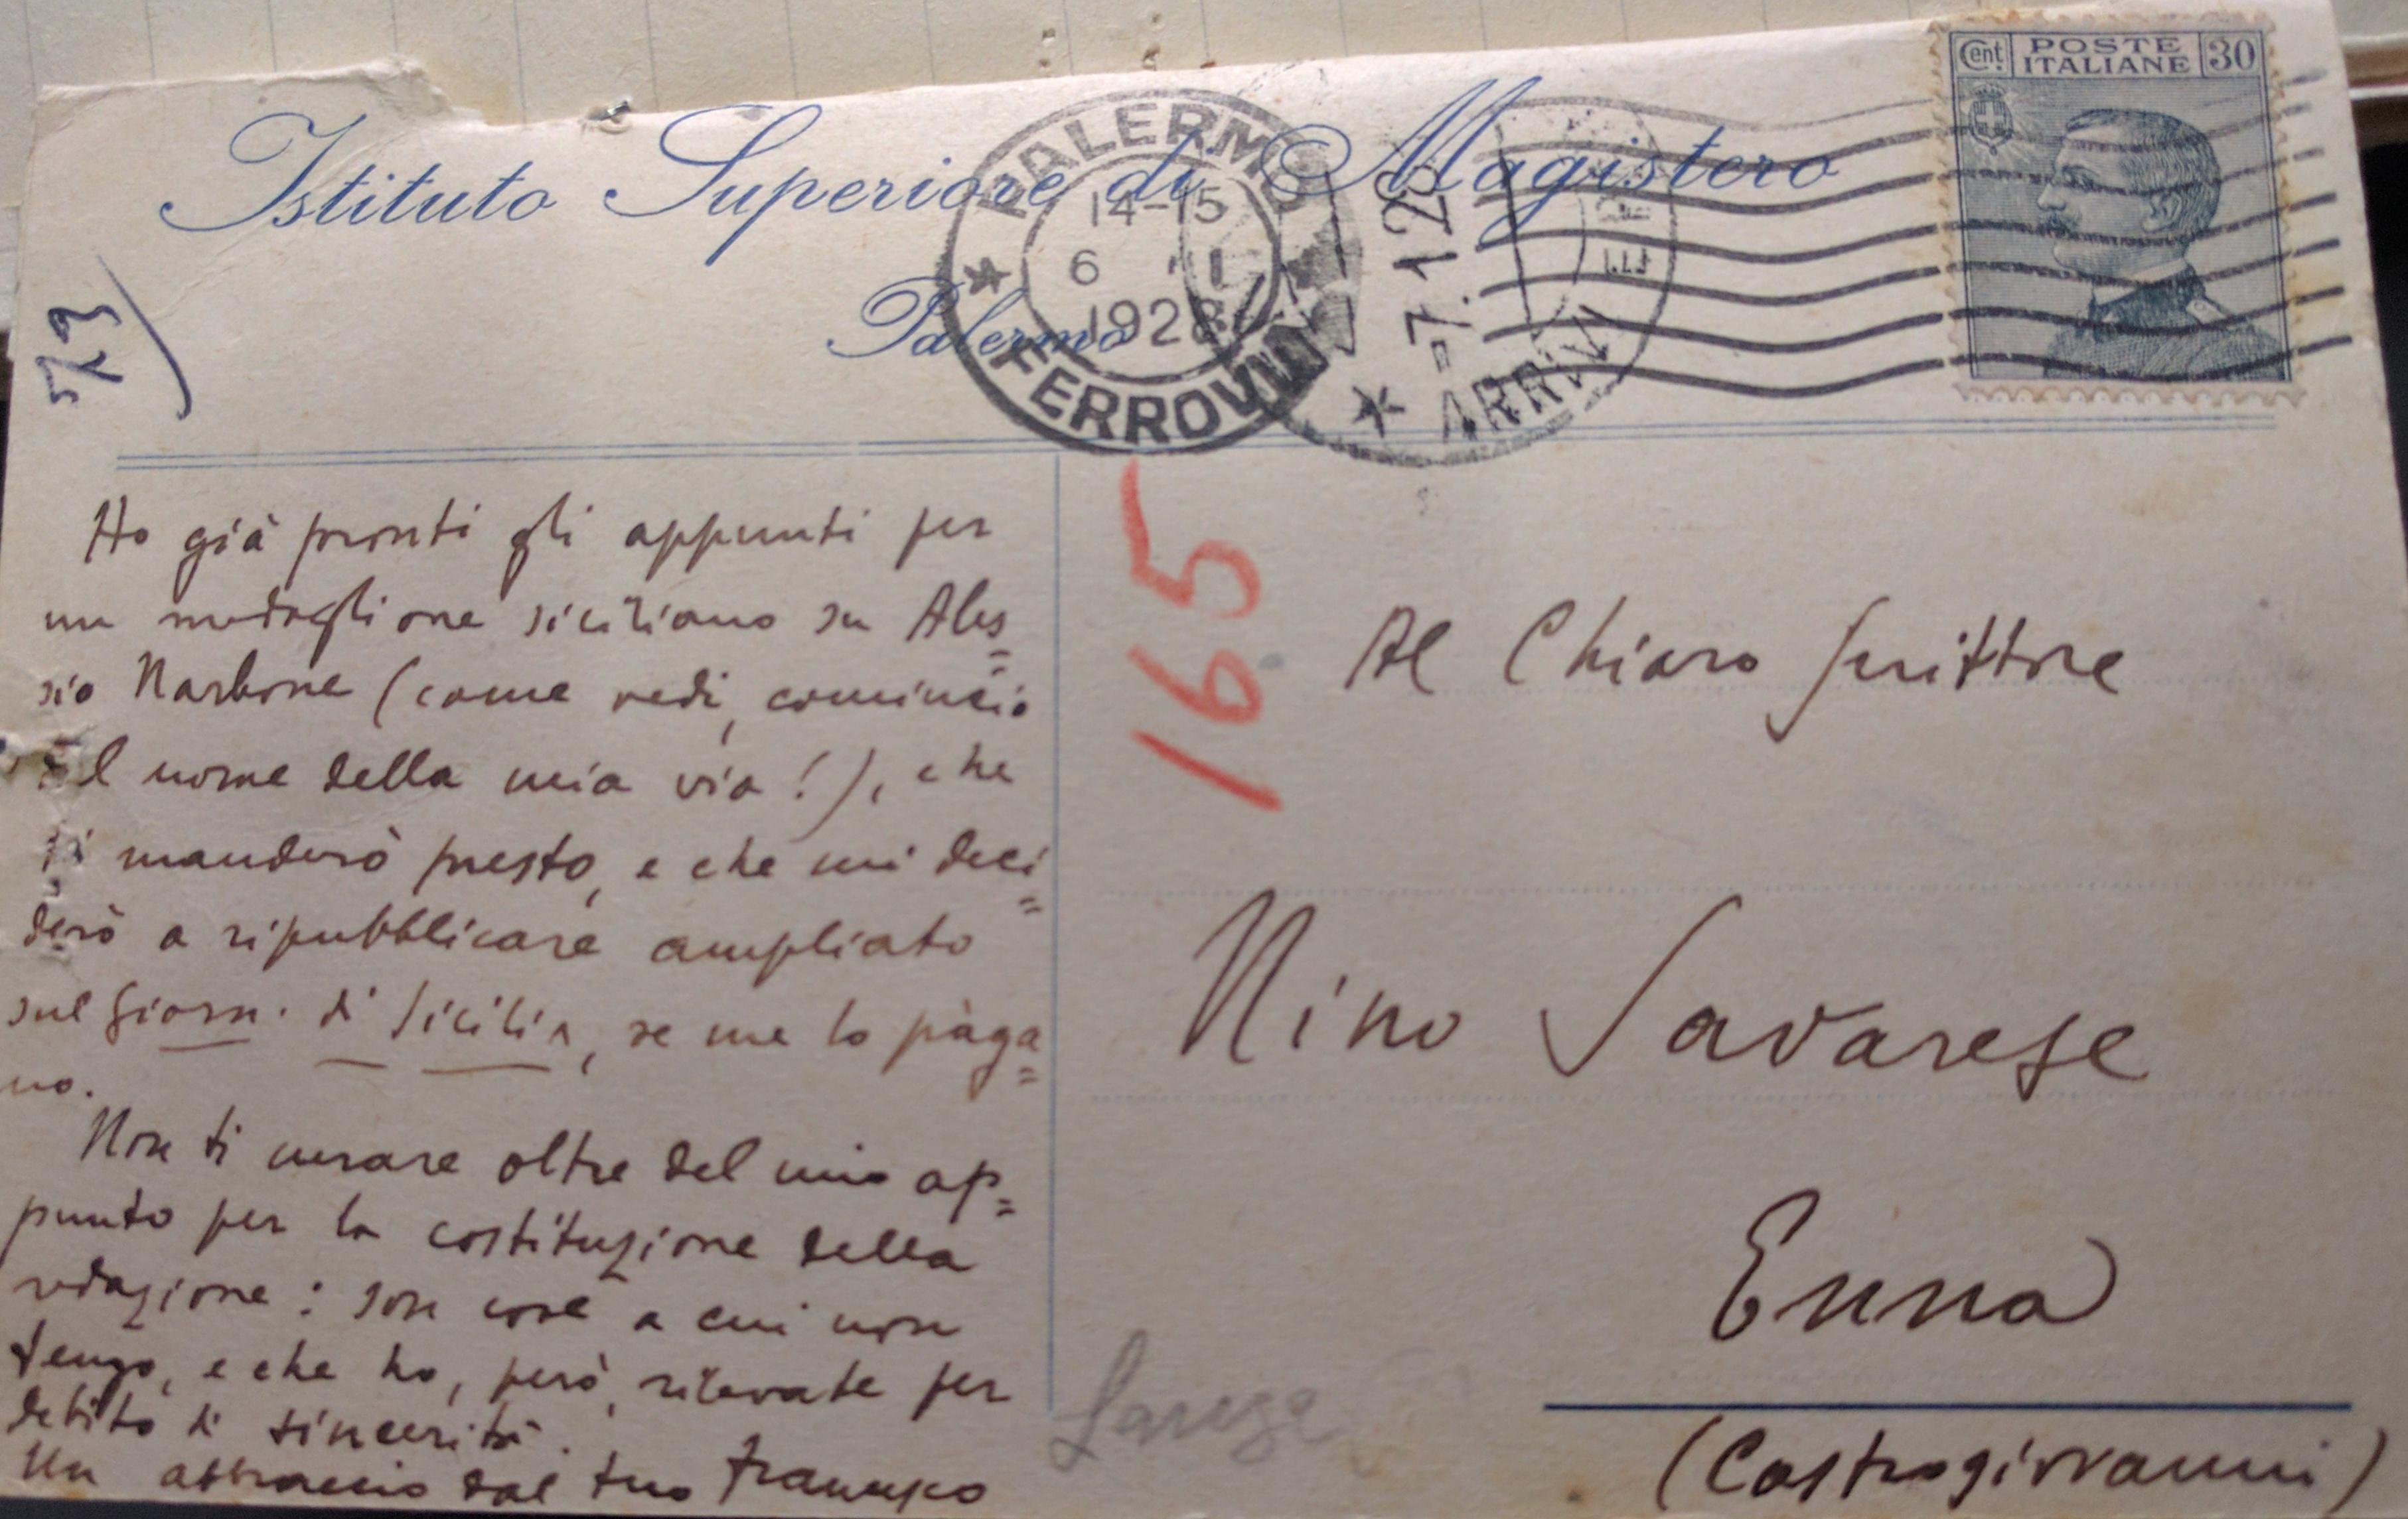 Cent. POSTE ITALIANE 30
Istituto Superiore di Magistero
Palermo
PALERMO
14-15
6 1
1928
FERROVIA
-7.1.28
ARRIVI
165
Ho già pronti gli appunti per
un medaglione siciliano su Ales=
sio Narbone (come vedi, comincio
dal nome della mia via!), che
ti manderò presto, e che mi deci=
derò a ripubblicare ampliato
sul Giorn. di Sicilia, se me lo pàga=
no.
Non ti curare oltre del mio ap=
punto per la costituzione della
redazione: son cose a cui non
tengo, e che ho, però, rilevate per
debito di sincerità.
Un abbraccio dal tuo Francesco
Al Chiaro Scrittore
Nino Savarese
Enna
(Castrogiovanni)